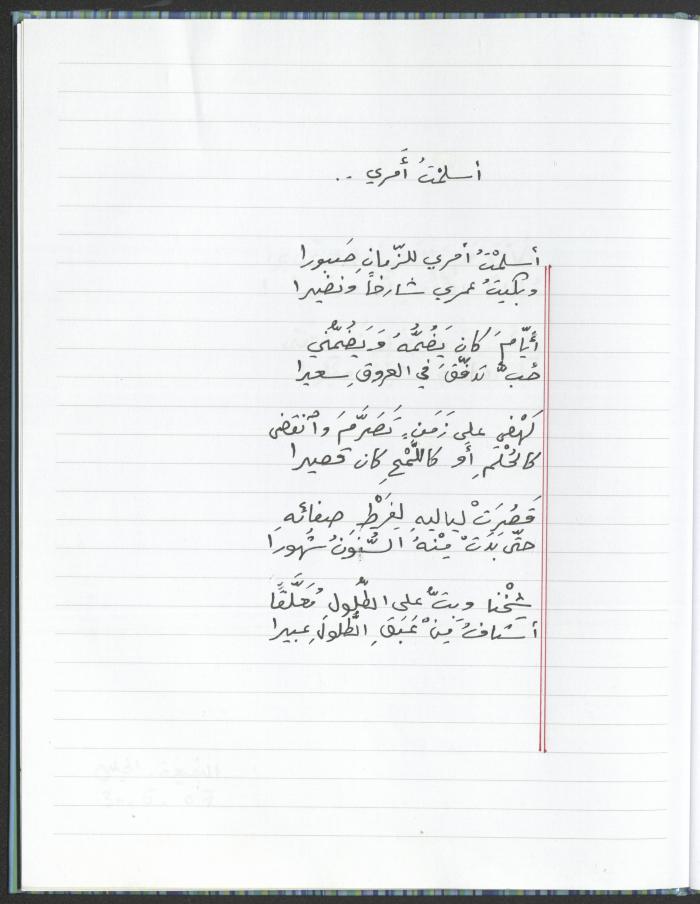 أسلمْتُ أَمري ..
أسلمْتُ أمري للزّمانِ صبورا
وبكيتُ عمري شارخاً ونضيرا
أيّامَ كان يَضُمُّهُ وَيَضُمُّني
حُبٌّ تدفّقَ في العروقِ سعيرا
لَهْفي على زَمَنٍ تَصَرَّمَ وٱنقضى
كالحُلْمِ أو كاللَّمْحِ كان قصيرا
قَصُرَتْ لياليهِ لِفَرْطِ صفائهِ
حتّى بَدَتْ مِنْهُ السُّنونُ شُهورا
شِخْنا وبتُّ على الطُّلولِ مُعَلَّقًا
أستافُ مِنْ عَبَقِ الطُّلولِ عبيرا